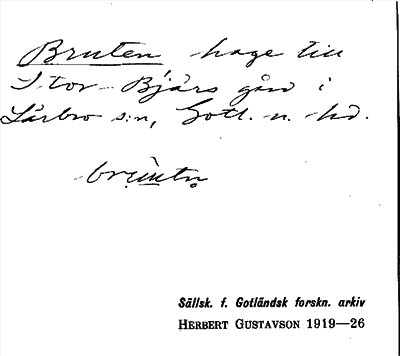 Bruten hage till
Stor Bjärs gård i
Lärbro s:n, Gotl. n. hd.
Sällsk. f. Gotländsk forskn. arkiv
HERBERT GUSTAVSON 1919—26